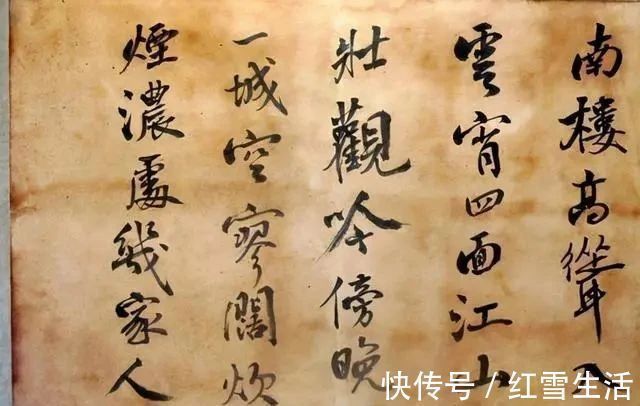 南樓高聳入
雲霄四面江山
壯觀吟傍晚
一城空寥闊炊
煙濃處幾家人
快传号 / 红雪生活